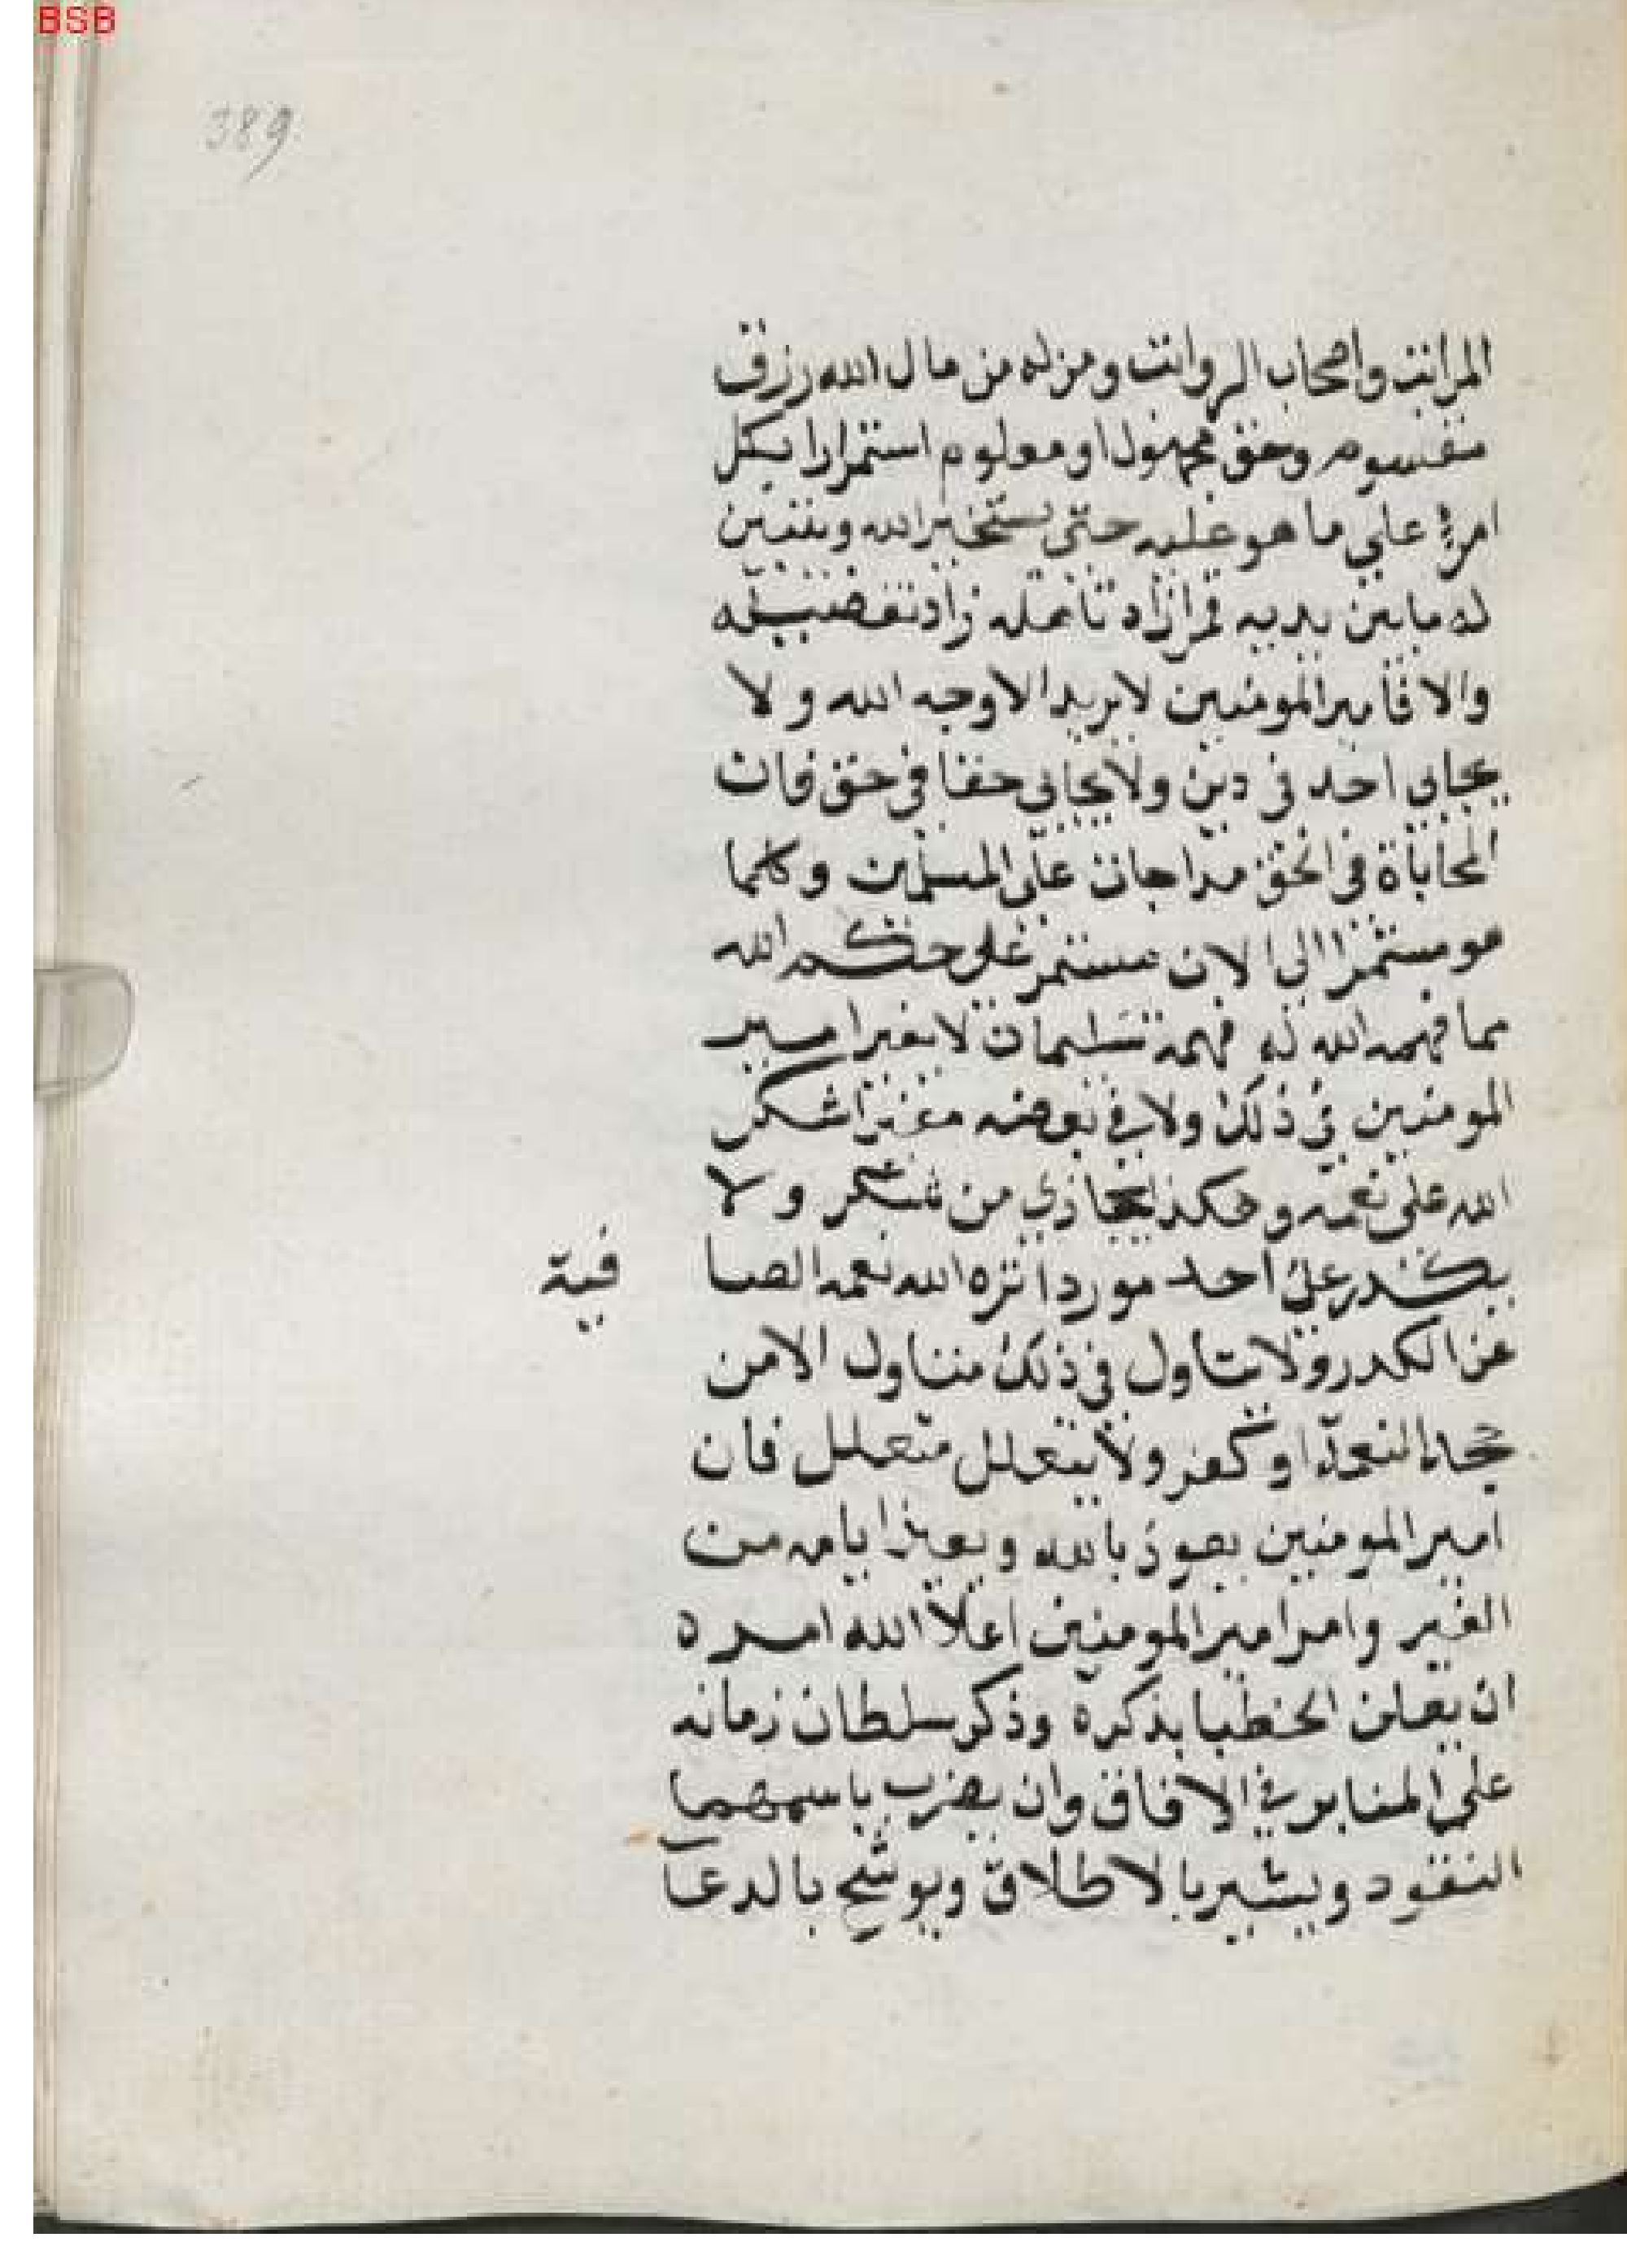 BSB
389
المراتب واصحاب الرواتب ومن له من مال الله رزق
مقسوم وحق مجهول او معلوم استمرارا بكل
امرئ علي ما هو عليه حتى يستخير الله ويتبين
له ما بين يديه فمن ازداد تاهله زاد تفضيله
والا فامير المومنين لا يريد الا وجه الله ولا
يحابي احد في دين ولا يحابي حقا في حق فان
المحاباة في الحق مداجاة على المسلمين وكلما
هو مستمر الى الان مستمر على حكم الله
مما فهمه الله له فهمه سليمان لا يغير امير
المومنين في ذلك ولا في بعضه مغيرا شكر
الله على نعمه وهكذا يجازي من شكر ولا
يكدر على احد موردا نزه الله نعمه الصا فية
عن الكدر ولا يتاول في ذلك متاول الا من
جحد النعمة او كفر ولا يتعلل متعلل فان
امير المومنين يعوذ بالله ويعيذ ايامه من
الغير وامر امير المومنين اعلا الله امره
ان يعلن الخطبا بذكره وذكر سلطان زمانه
على المنابر في الافاق وان يضرب باسمهما
النقود ويشير بالاطلاق ويوشح بالدعا